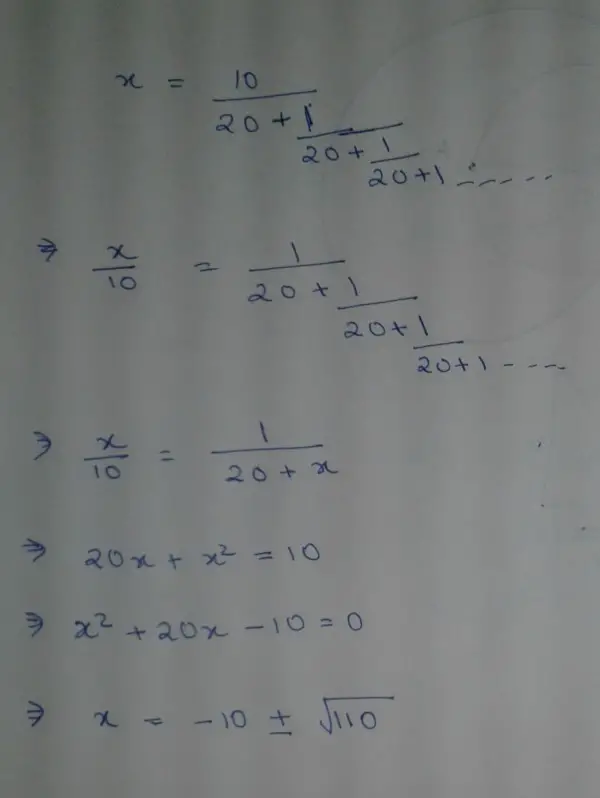 x = 10 / 20 + 1 / 20 + 1 / 20 + 1 -----
⇒ x/10 = 1 / 20 + 1 / 20 + 1 / 20 + 1 ----
⇒ x/10 = 1 / 20 + x
⇒ 20x + x² = 10
⇒ x² + 20x - 10 = 0
⇒ x = -10 ± √110